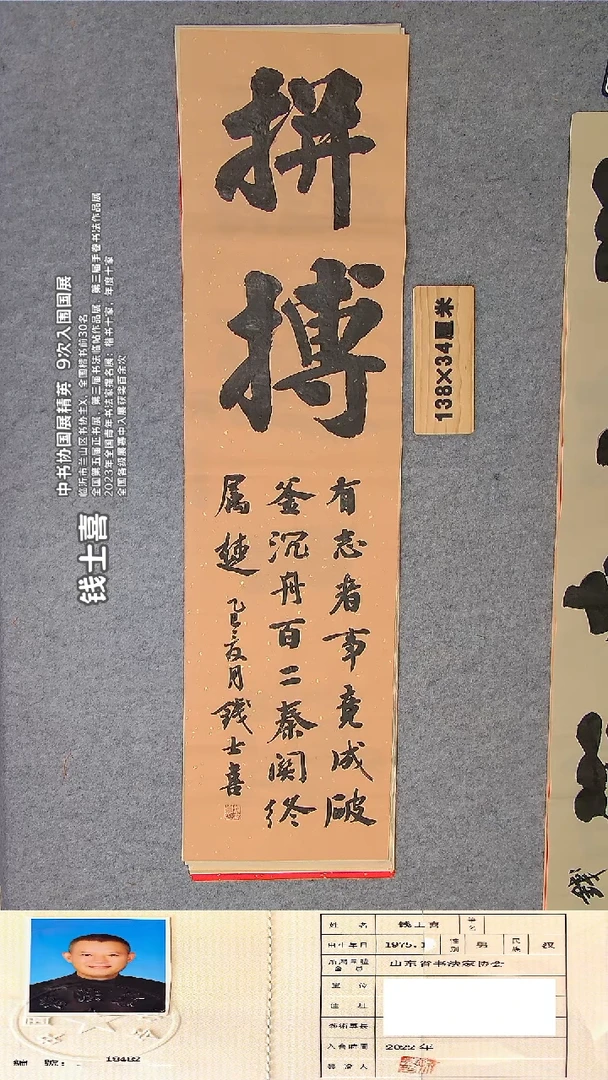 拼搏
有志者事竟成破
釜沉舟百二秦关终
属楚 乙巳之夏月 钱士喜
138×34厘米
钱士喜
中书协国展精英 9次入围国展
临沂市兰山区书协主X、全国楷书前30名
全国第五届正书展、第三届书法临帖作品展、第三届手卷书法作品展
2023年全国青年书法家提名展:楷书十家,年度十家
全国各级展赛中入展获奖百余次
钱
姓 名 钱士喜
出生年月 1975.1 性别 男 民族 汉
山东省书法家协会
单 位
入会时间 2022年
编 号: 19402